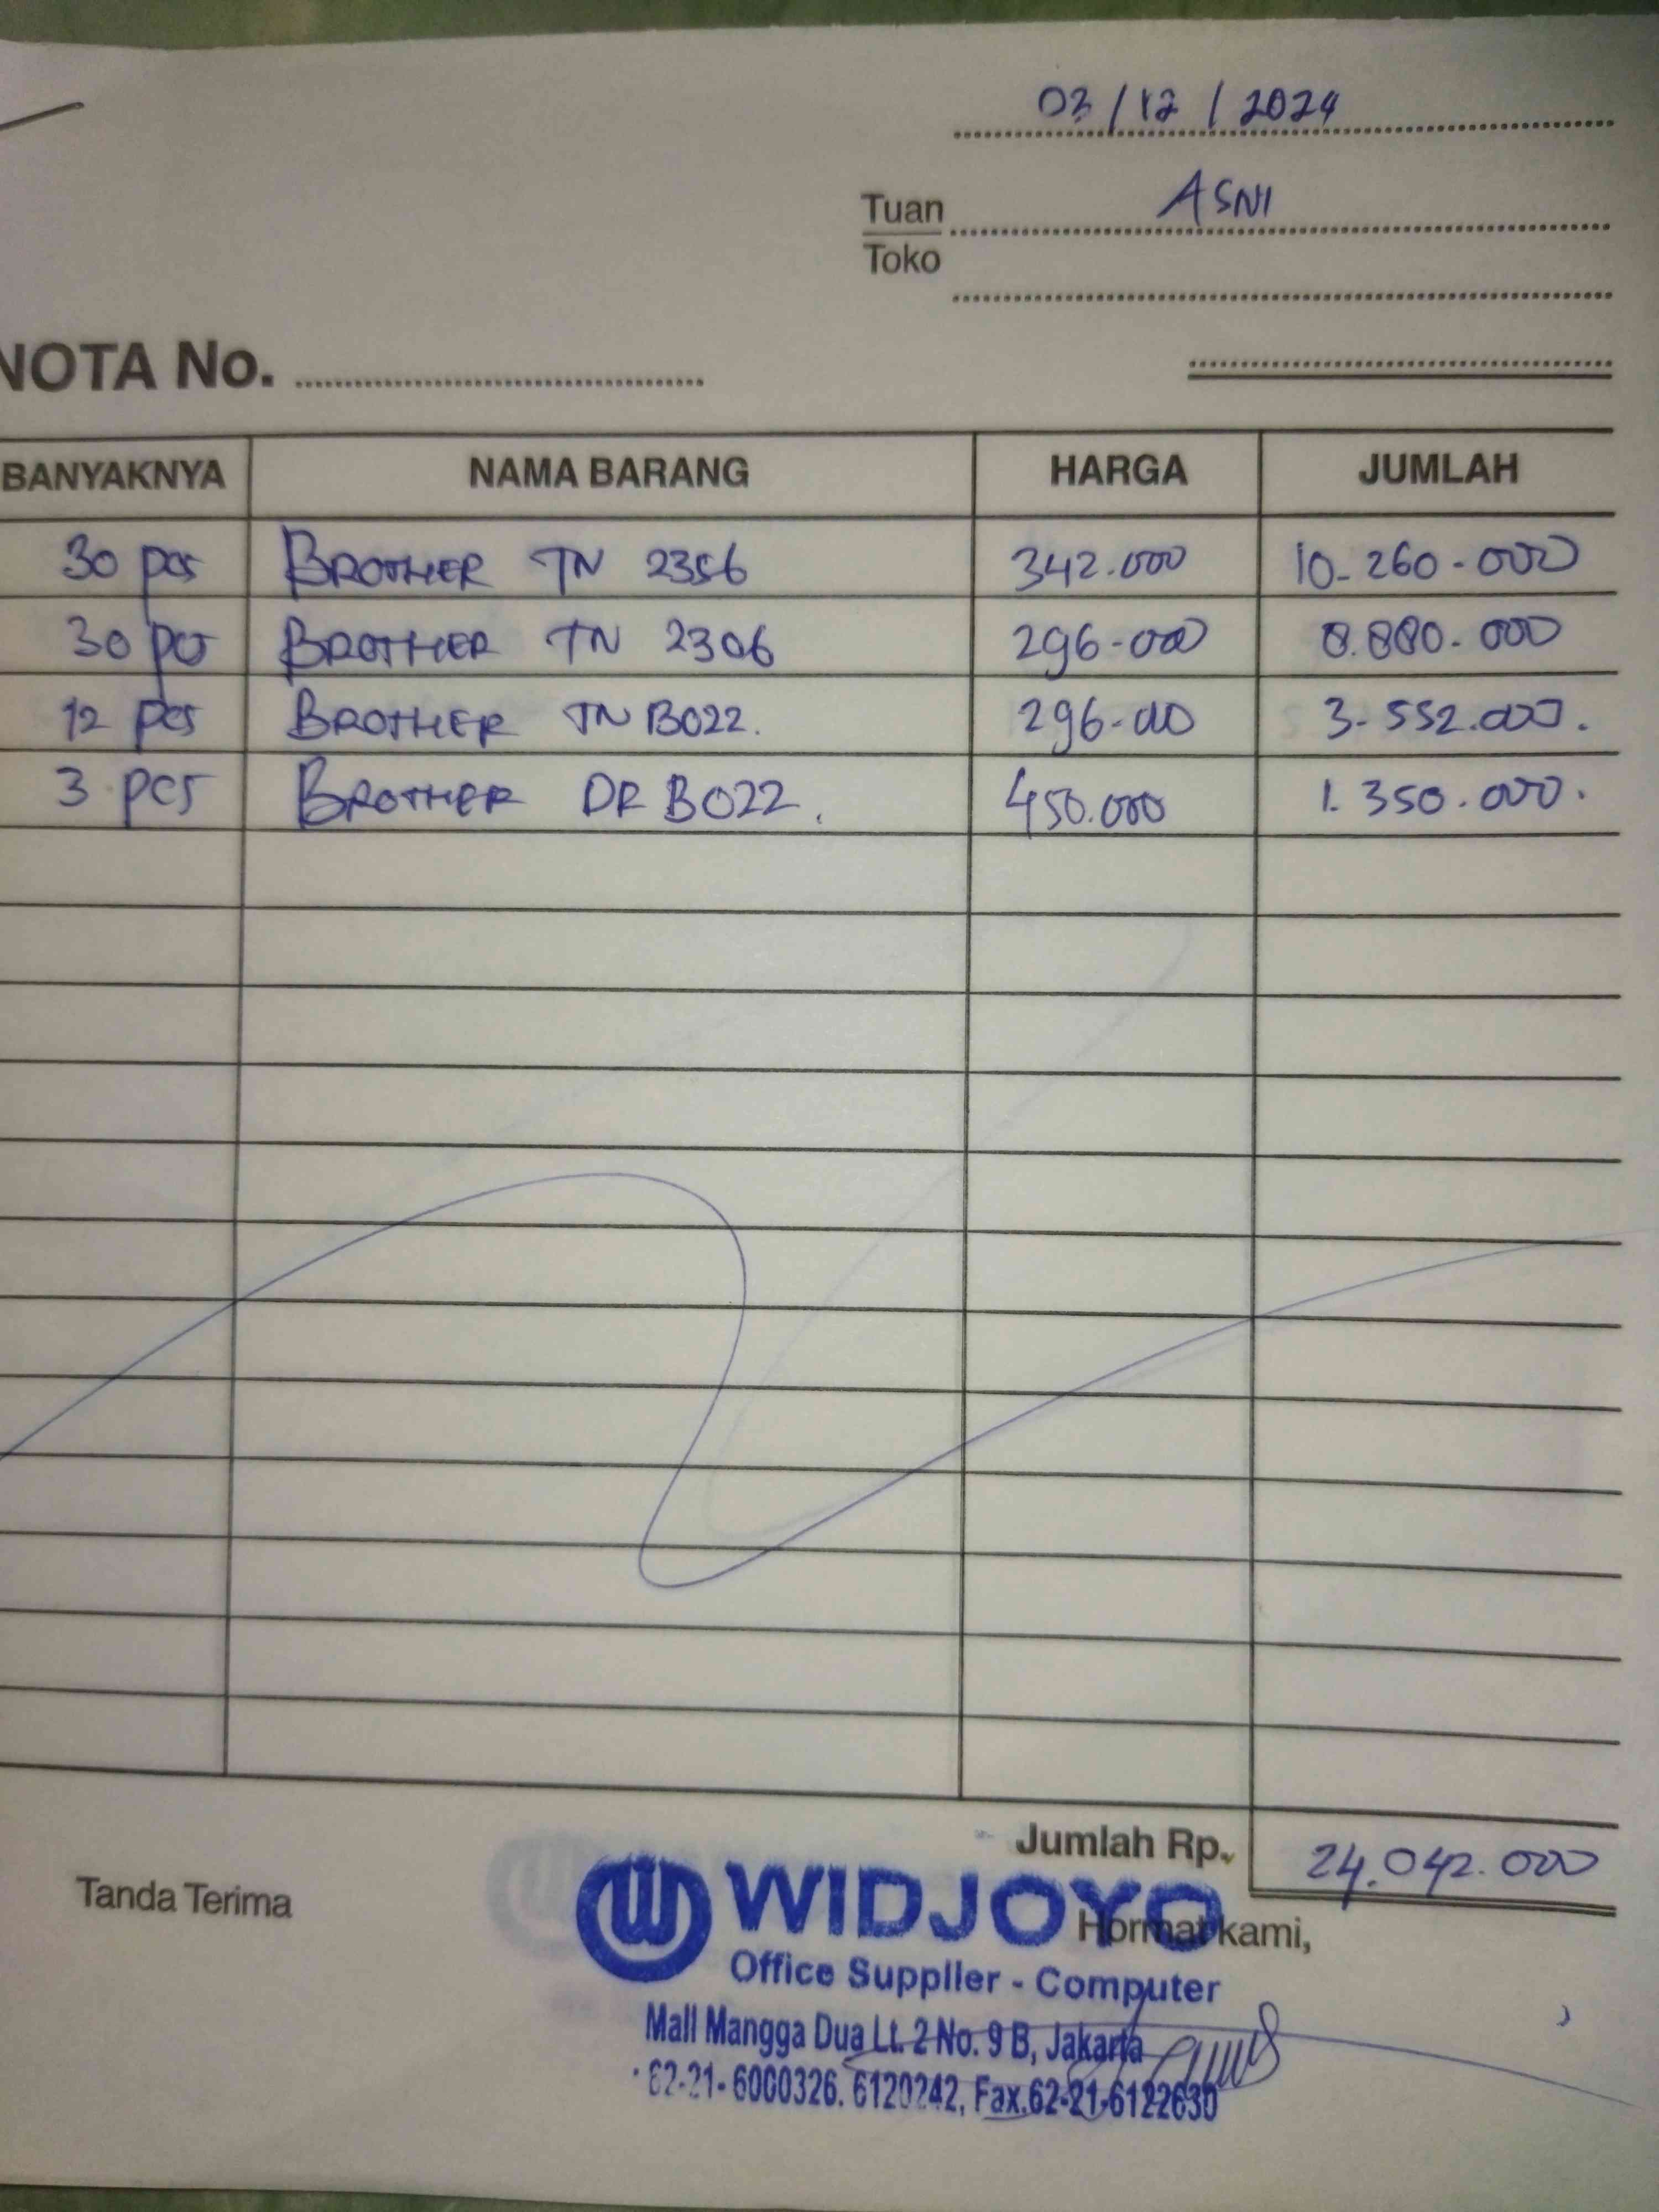 03/12/2024
Tuan ASNI
Toko
NOTA No.
BANYAKNYA NAMA BARANG HARGA JUMLAH
30 pcs BROTHER TN 2356 342.000 10-260-000
30 pcs BROTHER TN 2306 296-000 8.880-000
12 pcs BROTHER TN B022. 296-000 3-552.000.
3 pcs BROTHER DR B022. 450.000 1.350.000.
Jumlah Rp. 24.042.000
Tanda Terima
Hormat kami,
WIDJOYO
Office Supplier - Computer
Mall Mangga Dua Lt. 2 No. 9 B, Jakarta
62-21-6000326. 6120242, Fax.62-21-6122630